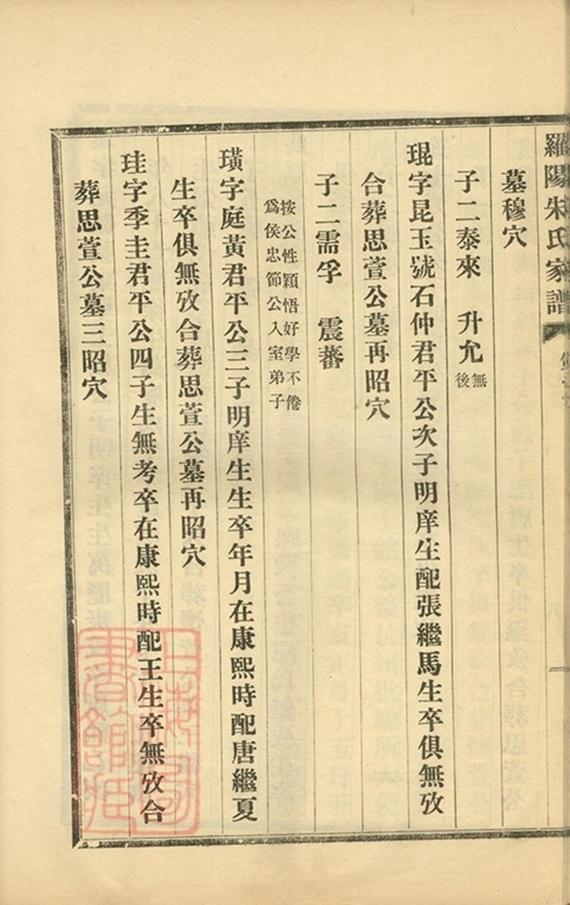 羅陽朱氏家譜
墓穆穴
子二泰來 升允無後
琨字昆玉號石仲君平公次子明庠生配張繼馬生卒俱無攷
合葬思萱公墓再昭穴
子二需孚 震蕃
按公性穎悟好學不倦
爲侯忠節公入室弟子
璜字庭黃君平公三子明庠生生卒年月在康熙時配唐繼夏
生卒俱無攷合葬思萱公墓再昭穴
珪字季圭君平公四子生無考卒在康熙時配王生卒無攷合
葬思萱公墓三昭穴